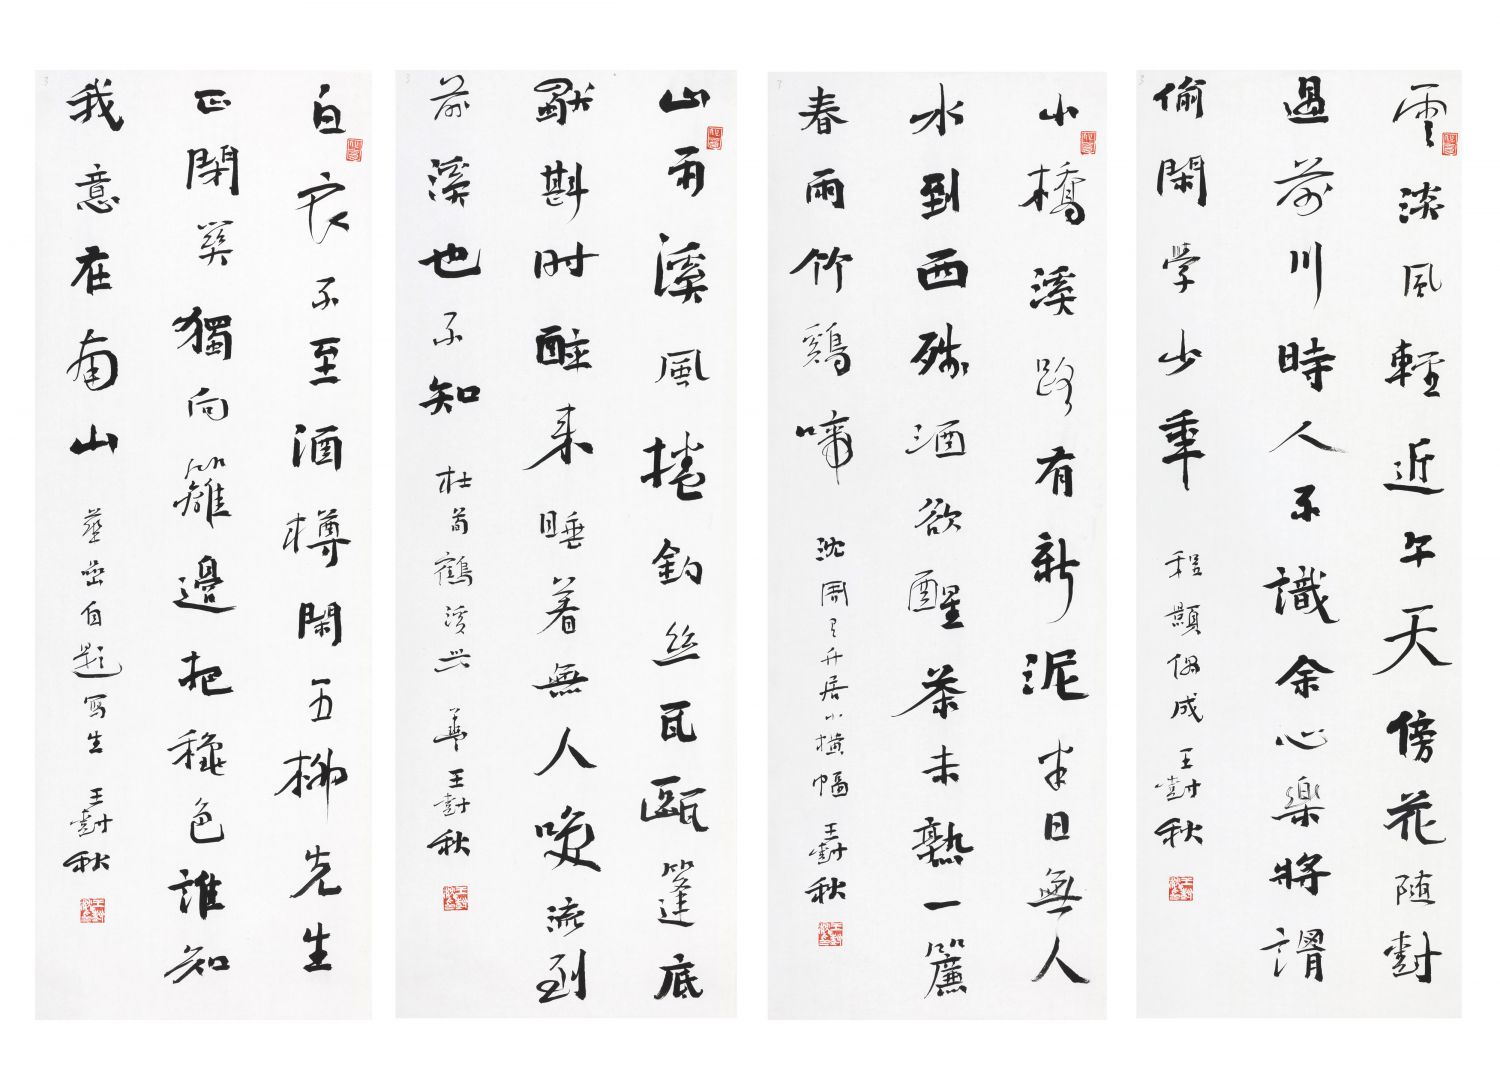 雲淡風輕近午天傍花随對
過前川時人不識余心樂將謂
偷閑學少年 程顥偶成 王對秋
小橋溪路有新泥半日無人
水到西殊酒欲醒茶未熟一簾
春雨竹鷄啼 沈周 居小横幅 王對秋
山雨溪風捲釣丝瓦甌篷底
獨斟时醉来睡着無人喚流到
前溪也不知 杜荀鶴溪兴 王對秋
白衣不至酒樽閑五柳先生
正閉關獨向籬邊把穐色誰知
我意在南山 自題寫生 王對秋